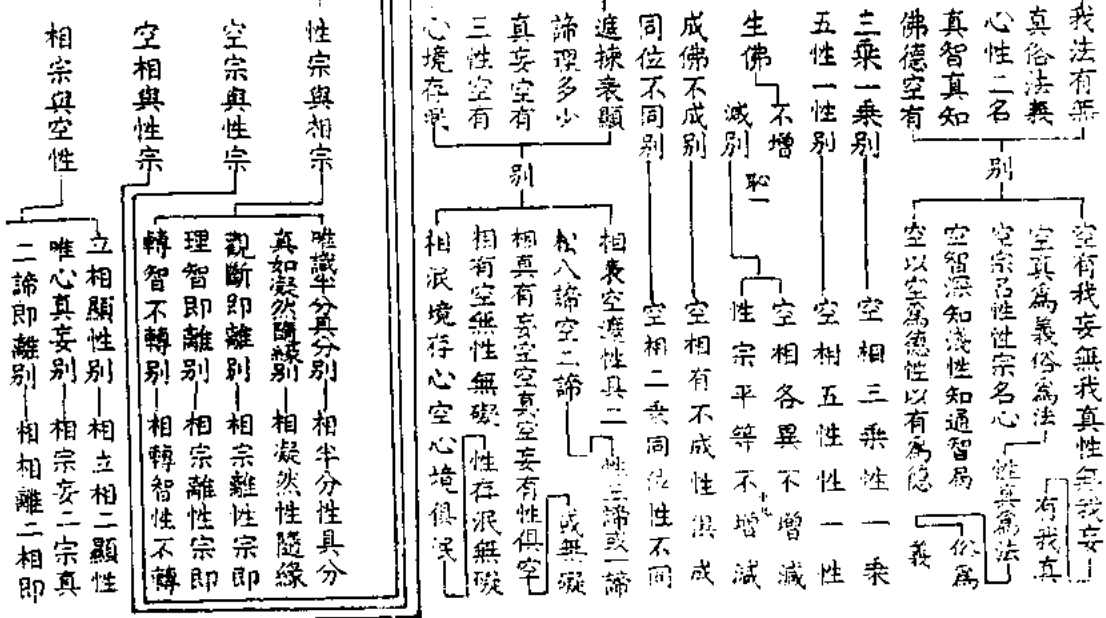 我法有無
真俗法義
心性二名
真智真知
佛德空有
別
空有我妄無我真性無我妄
有我真
空真為義俗為法
性真為法
俗為
義
空宗名性性宗名心
空智深知淺性知通智局
空以空為德性以有為德
三乘一乘別
空相三乘性一乘
五性一性別
空相五性性一性
生佛
不增
減別
恥一
空相各異不增減
性宗平等不增減
成佛不成別
空相有不成性俱成
同位不同別
空相二乘同位性不同
遮揀表顯
諦理多少
真妄空有
三性空有
心境存泯
別
相表空遮性具二
松八諦空二諦
性三諦或一諦
或無礙
相真有妄空空真空妄有性俱空
相有空無性無礙
相泯境存心空心境俱泯
性存泯無礙
性宗與相宗
空宗與性宗
空相與性宗
相宗與空性
唯識半分具分別
相半分性具分
真如凝然隨緣別
相凝然性隨緣
觀斷即離別
相宗離性宗即
理智即離別
相宗離性宗即
轉智不轉別
相轉智性不轉
立相顯性別
相立相二顯性
唯心真妄別
相宗妄二宗真
二諦即離別
相相離二相即